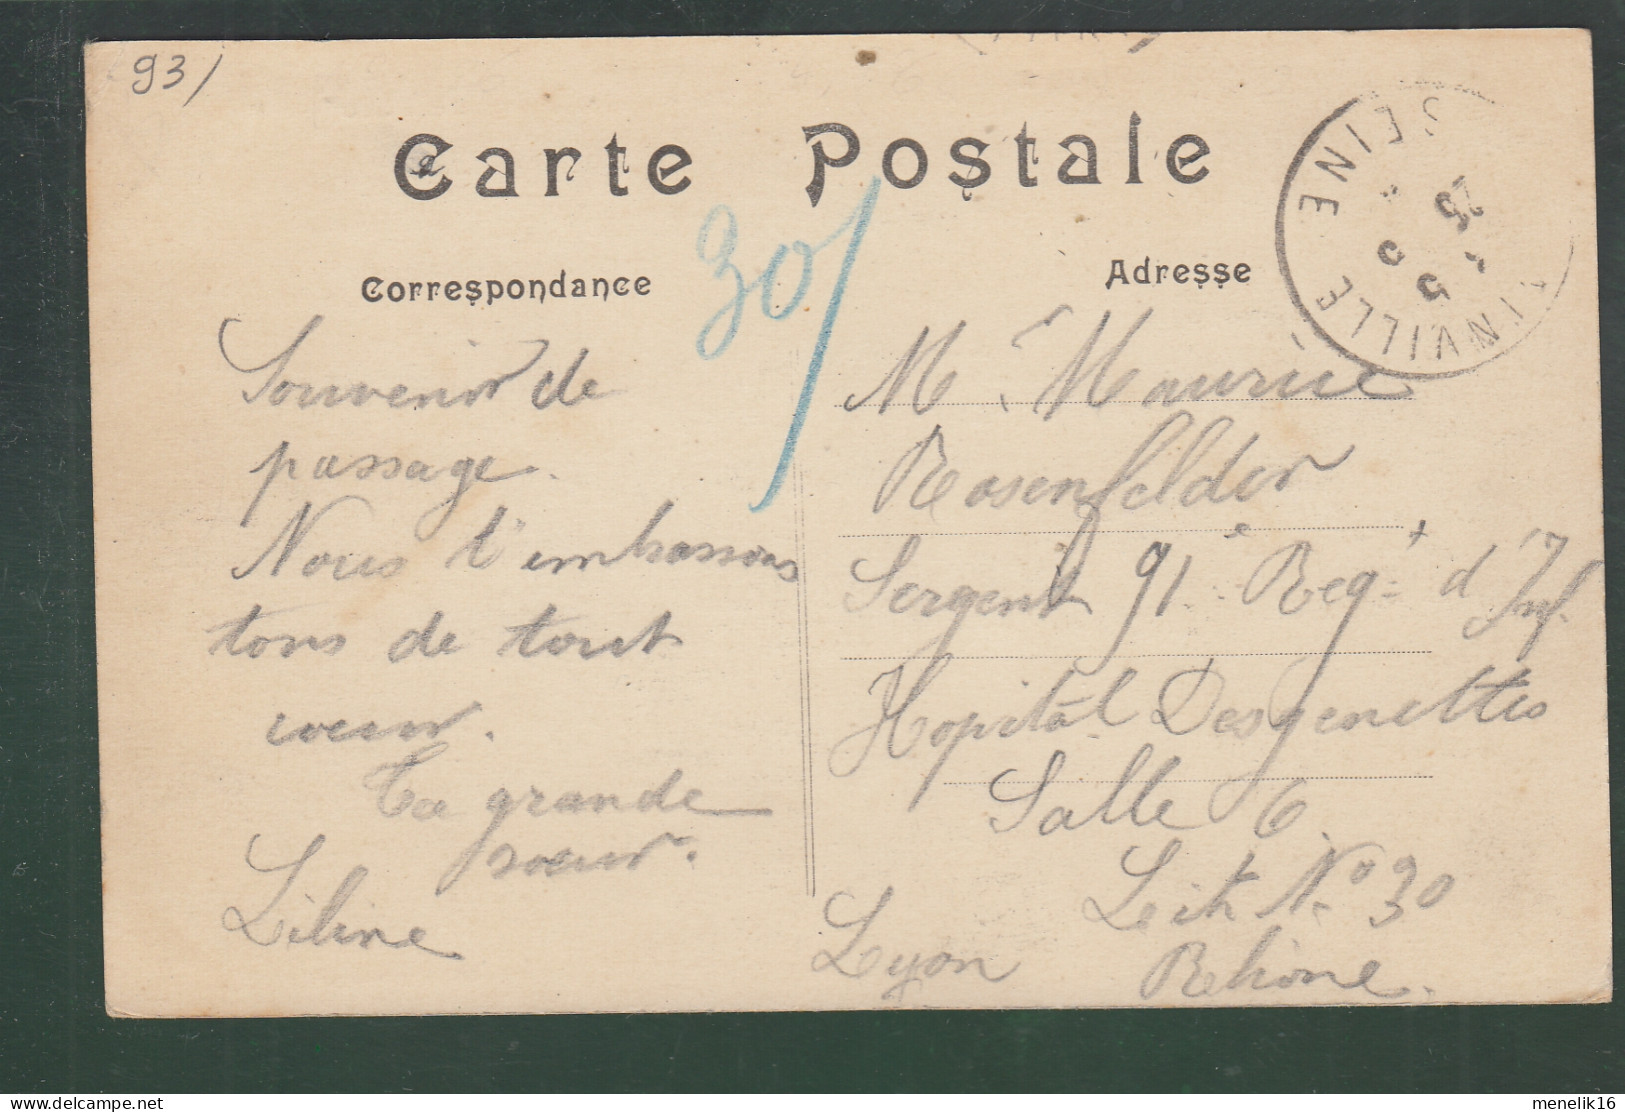 93/
Carte Postale
30/
Correspondance
Souvenir de
passage.
Nous t'embrassons
tous de tout
coeur.
Ta grande
soeur.
Liline
Adresse
Mr. Maurice
Rosenfelder
Sergent 91e Regt d'Inf.
Hopital Desgenettes
Salle 6
Lit No 30
Lyon Rhône.
INVILLE SEINE
25
menelik16